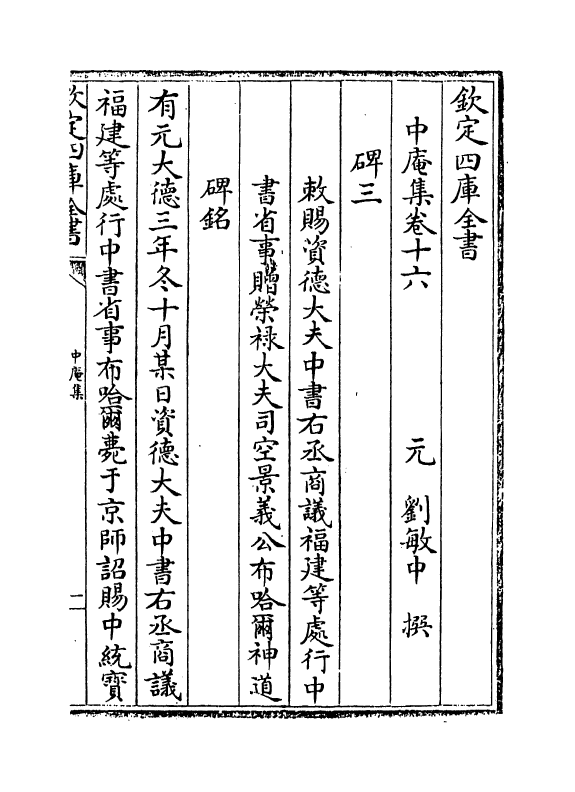 欽定四庫全書
中庵集卷十六
元 劉敏中 撰
碑三
敕賜資德大夫中書右丞商議福建等處行中
書省事贈榮禄大夫司空景義公布哈爾神道
碑銘
有元大德三年冬十月某日資德大夫中書右丞商議
福建等處行中書省事布哈爾薨于京師詔賜中統寳
欽定四庫全書
中庵集